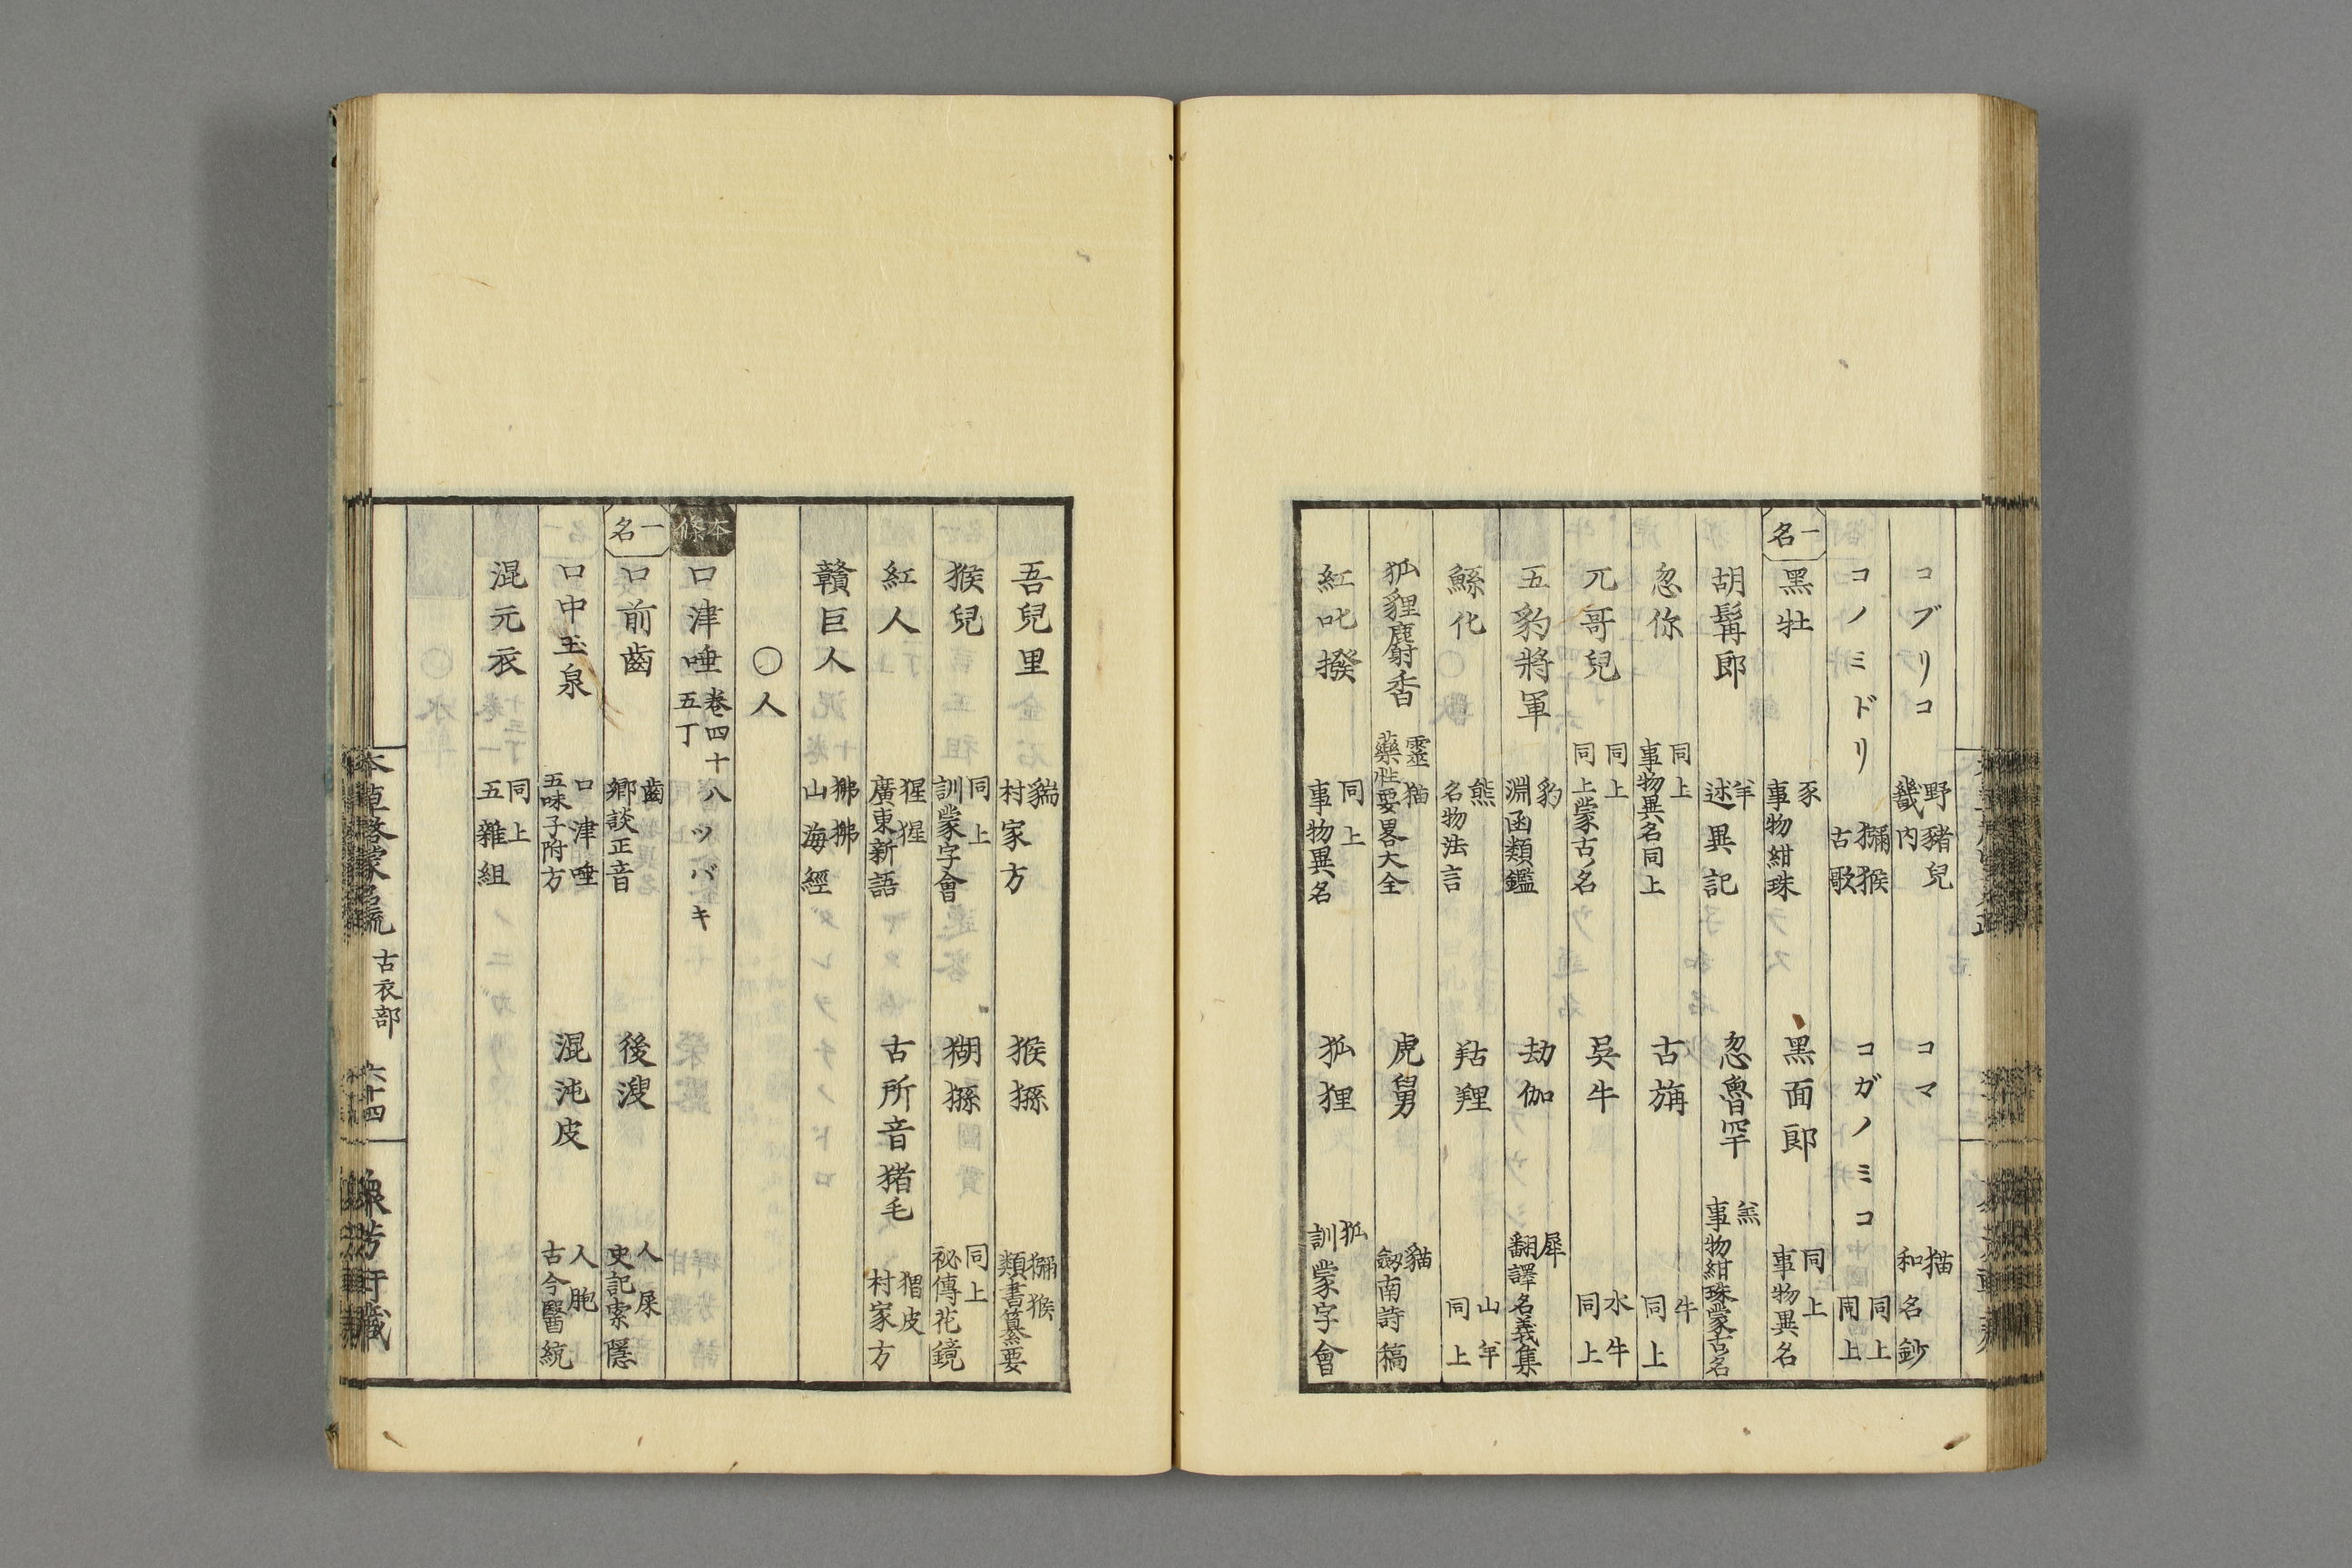 コブリコ 野豬兒 畿内 コマ 猫 和名鈔
コノミドリ 獼猴 古歌 コガノミコ 同上 同上
一名 黑牡 豕 事物紺珠 黑面郎 同上 事物異名
胡髯郎 羊 述異記 忽魯罕 羔 事物紺珠蒙古名
忽你 同上 事物異名同上 古旃 牛 同上
兀哥兒 同上 同上蒙古名 吳牛 水牛 同上
五豹將軍 豹 淵函類鑑 劫伽 犀 翻譯名義集
鯀化 熊 名物法言 羖羥 山羊 同上
狐貍麝香 靈猫 藥性要畧大全 虎舅 貓 劔南詩稿
紅叱撥 同上 事物異名 狐狸 狐 訓蒙字會
吾兒里 貒 村家方 猴猻 獼猴 類書纂要
猴兒 同上 訓蒙字會 猢猻 同上 祕傳花鏡
紅人 猩猩 廣東新語 古所音猪毛 猬皮 村家方
贛巨人 狒狒 山海經
〇人
本條 口津唾 卷四十八 五丁 ツバキ
一名 口前齒 齒 鄉談正音 後溲 人屎 史記索隱
口中玉泉 口津唾 五味子附方 混沌皮 人胞 古今醫統
混元衣 同上 五雜組
本草啓蒙名疏 古衣部 六十四 衆芳軒藏